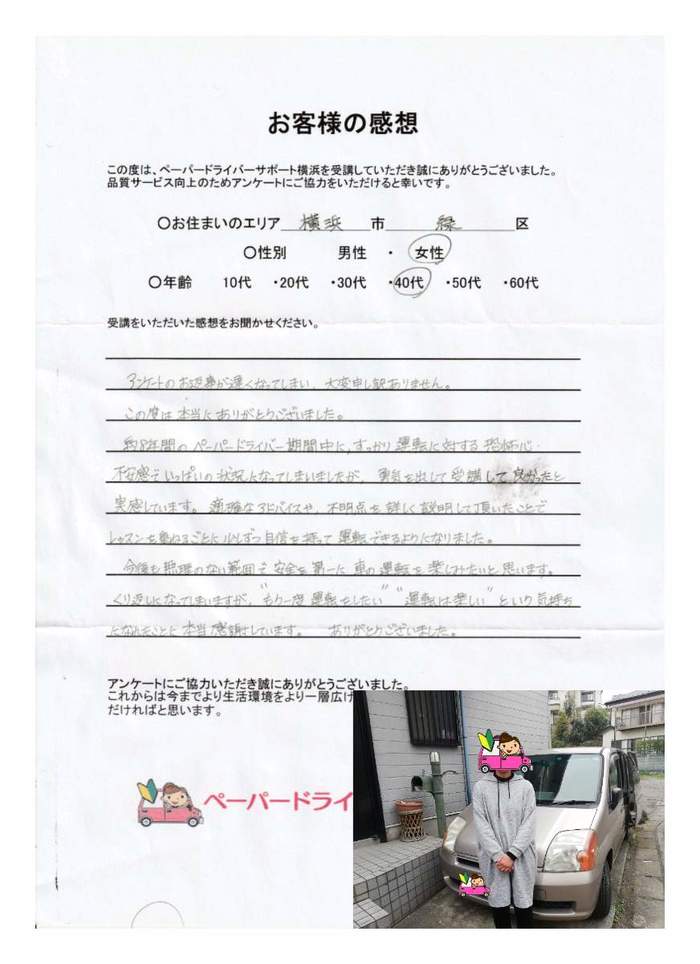 お客様の感想
この度は、ペーパードライバーサポート横浜を受講していただき誠にありがとうございました。
品質サービス向上のためアンケートにご協力をいただけると幸いです。
〇お住まいのエリア 横浜 市 緑 区
〇性別 男性 ・ 女性
〇年齢 10代 ・20代 ・30代 ・40代 ・50代 ・60代
受講をいただいた感想をお聞かせください。
アンケートのお返事が遅くなってしまい、大変申し訳ありません。
この度は本当にありがとうございました。
約8年間のペーパードライバー期間中に、すっかり運転に対する恐怖心・
不安感でいっぱいの状況になってしまいましたが、勇気を出して受講して良かったと
実感しています。適確なアドバイスや、不明点を詳しく説明して頂いたことで
レッスンを重ねるごとに少しずつ自信を持って運転できるようになりました。
今後も無理のない範囲で安全を第一に車の運転を楽しみたいと思います。
くり返しになってしまいますが、"もう一度運転をしたい" "運転は楽しい" という気持ち
になれたことに本当感謝しています。 ありがとうございました。
アンケートにご協力いただき誠にありがとうございました。
これからは今までより生活環境をより一層広げ
だければと思います。
ペーパードライ